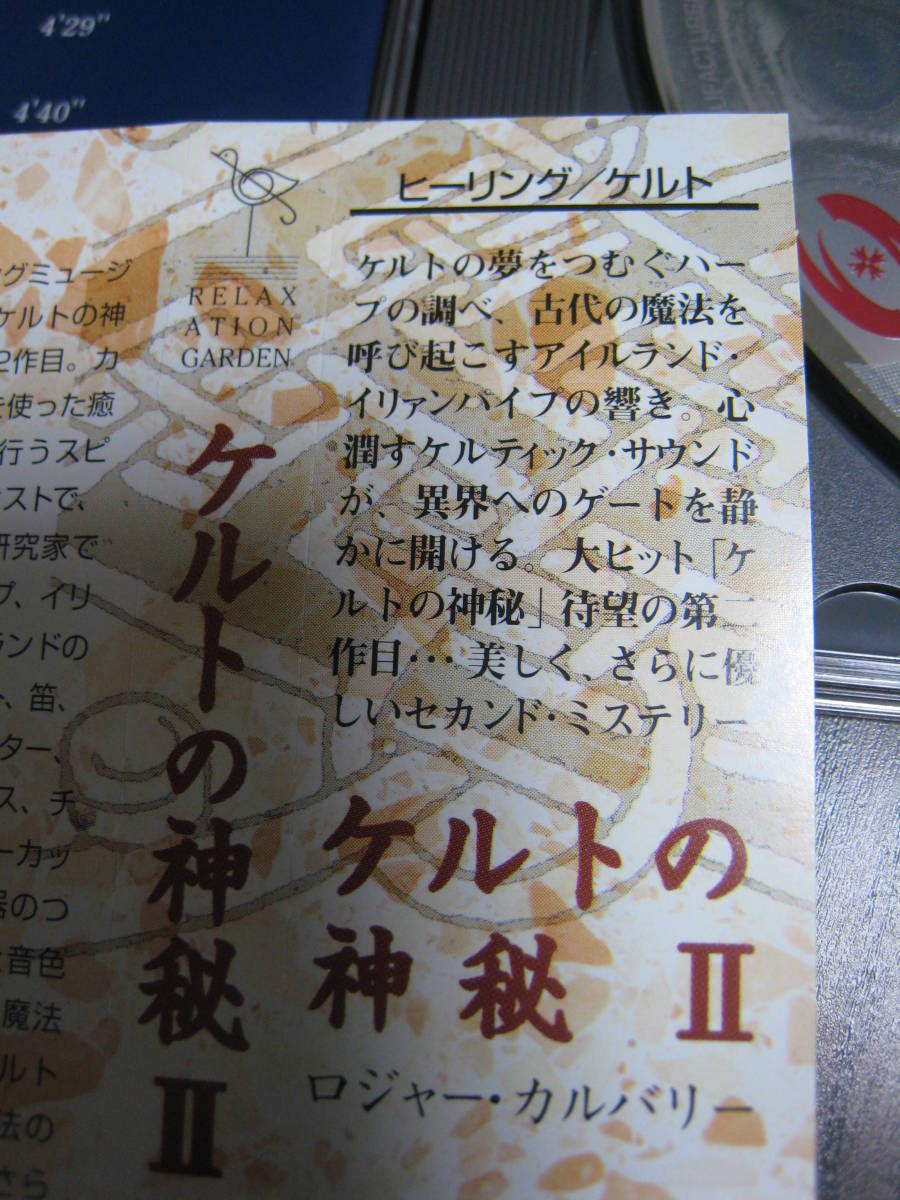 4'29"
4'40"
ングミュージ
ケルトの神
2作目。カ
を使った癒
行うスピ
ストで、
研究家で
プ、イリ
ランドの
ト、笛、
ター、
ス、チ
ーカッ
器のつ
音色
魔法
ルト
法の
さら
RELAX
ATION
GARDEN
ケルトの神秘 II
ヒーリング/ケルト
ケルトの夢をつむぐハー
プの調べ、古代の魔法を
呼び起こすアイルランド・
イリァンパイプの響き。心
潤すケルティック・サウンド
が、異界へのゲートを静
かに開ける。大ヒット「ケ
ルトの神秘」待望の第二
作目…美しく、さらに優
しいセカンド・ミステリー
ケルトの
神秘 II
ロジャー・カルバリー